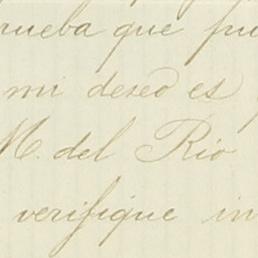 prueba que pu
mi deseo es
M. del Rio
verifique in